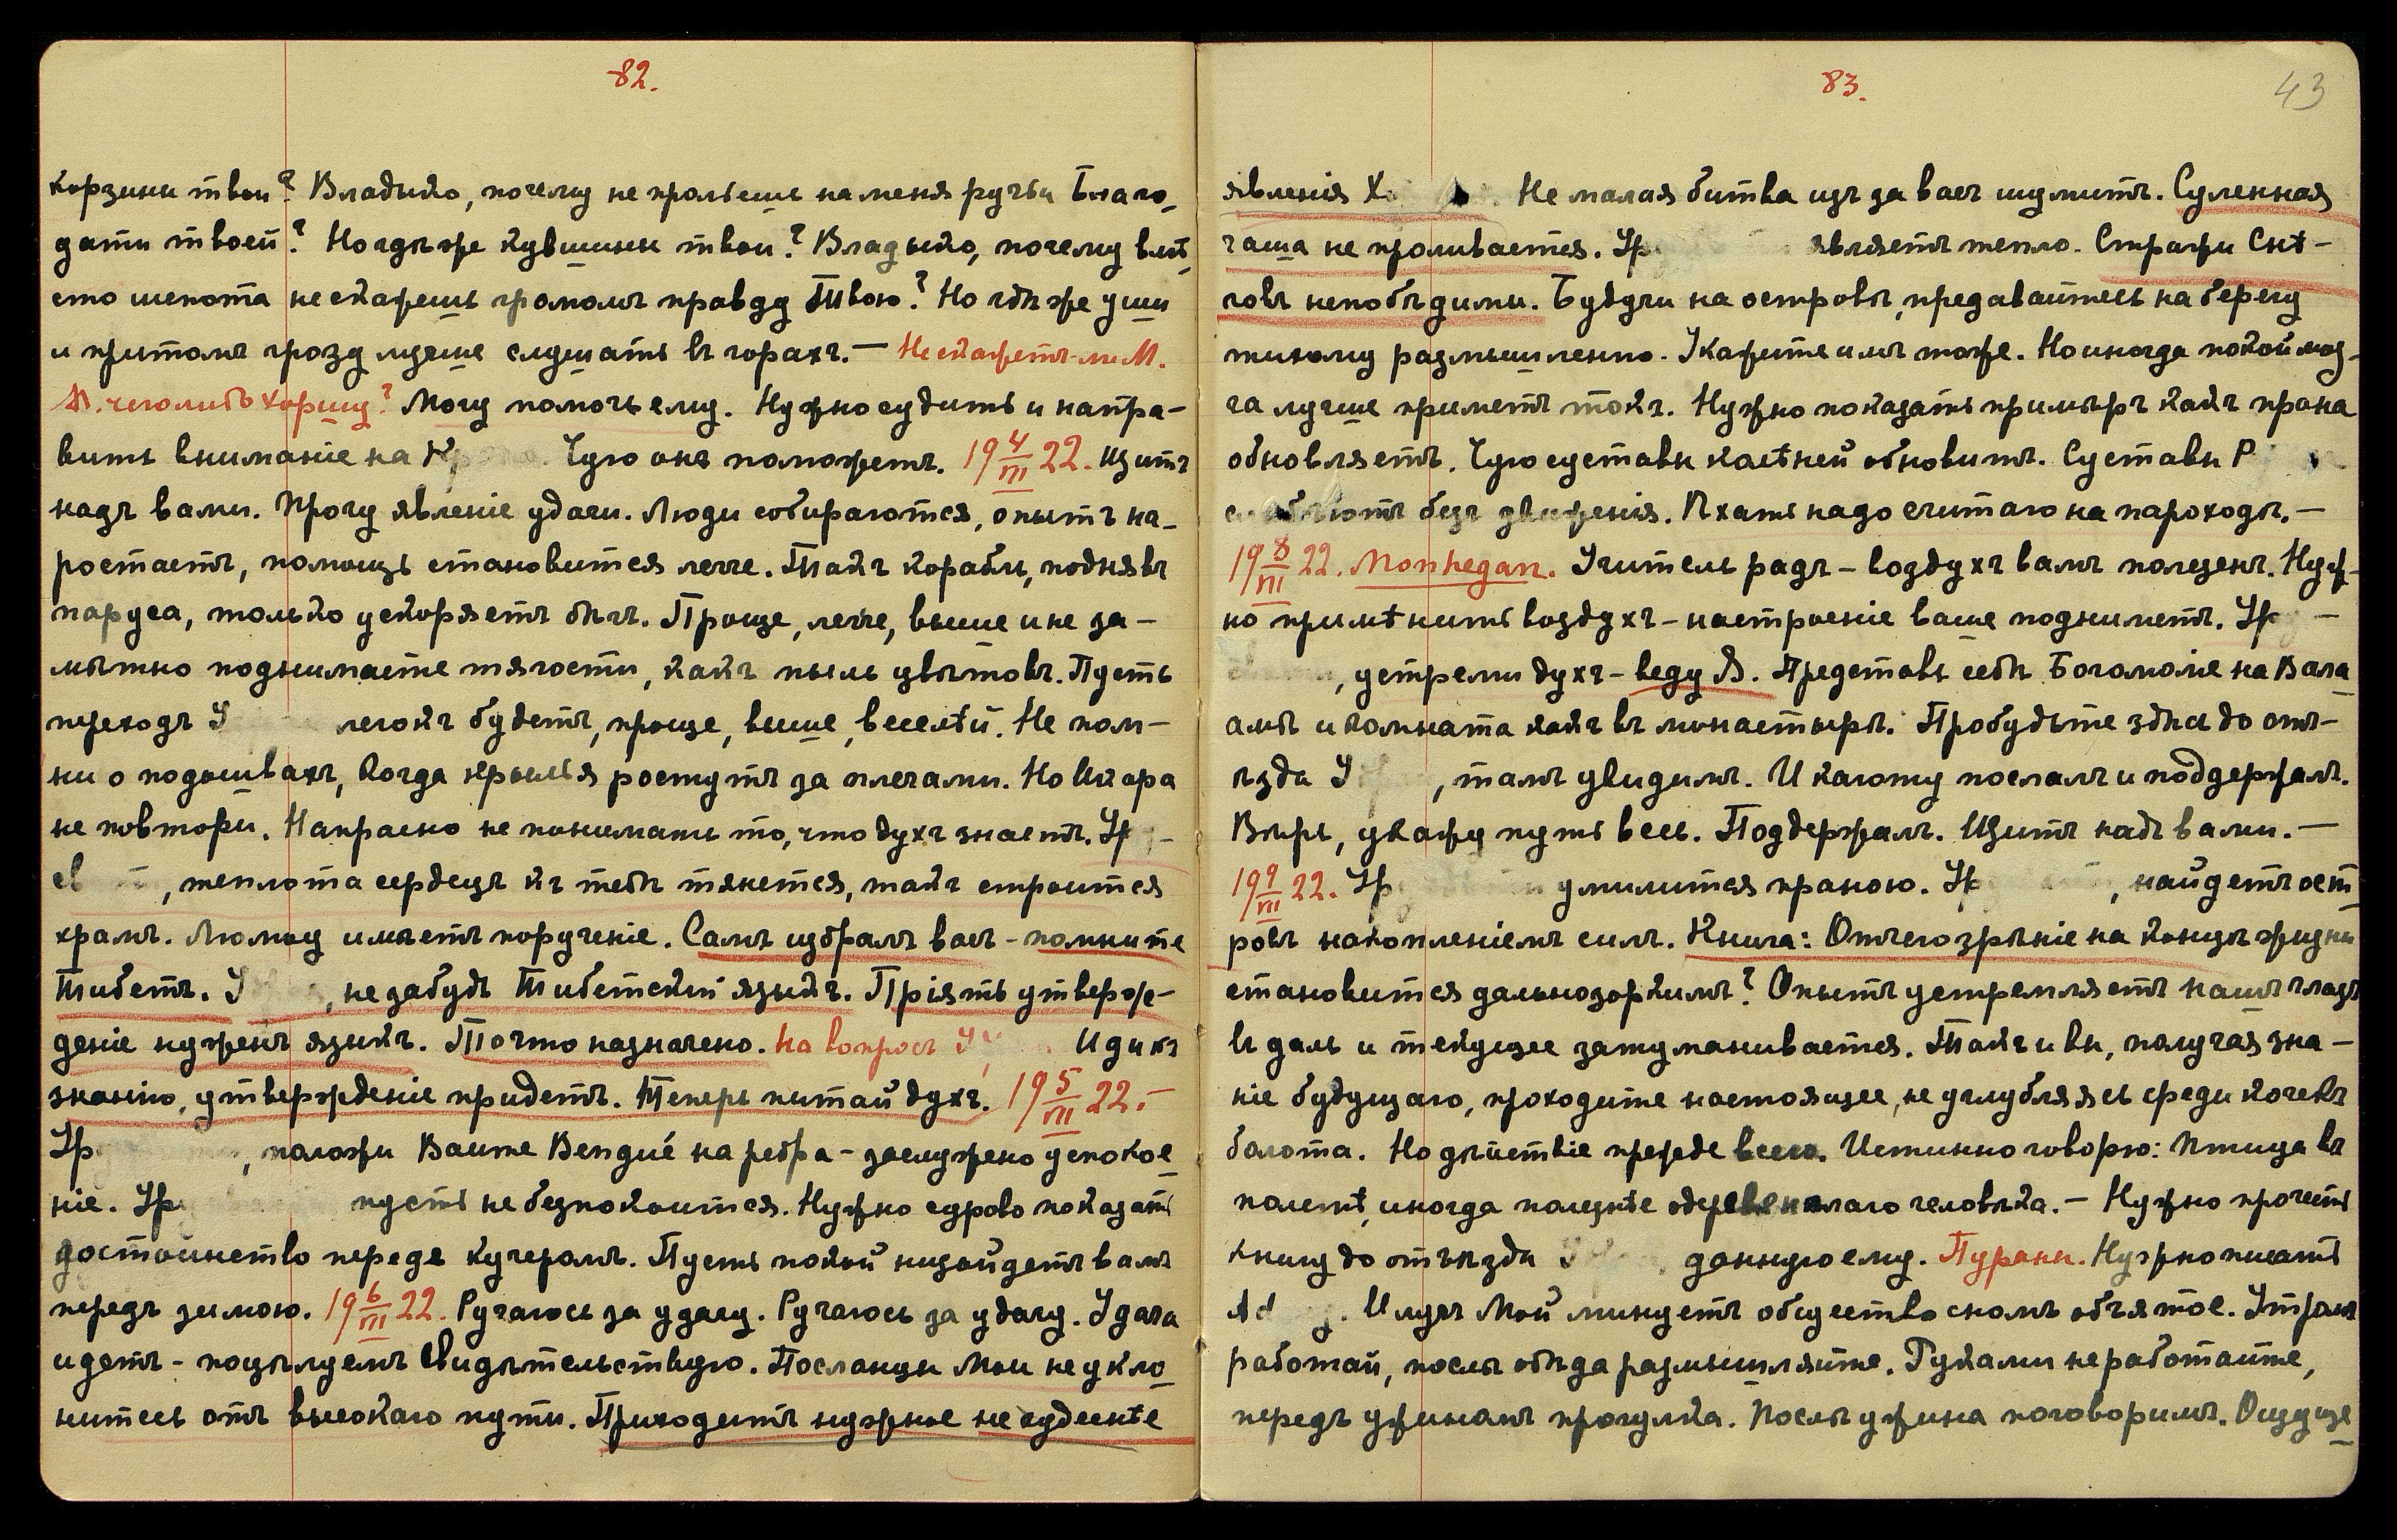 82.
корзины твои? Владыко, почему не прольешь на меня ручьи Благо-
дати твоей? Но где же кувшины твои? Владыко, почему вмѣ-
сто шепота не скажешь громомъ правду Твою? Но гдѣ же уши
и притомъ грозу лучше слушать въ горахъ. — Не скажетъ-ли М.
М. чеголибо Хоршу? Могу помочь ему. Нужно судить и напра-
вить вниманіе на Чудо онъ поможетъ. 19 4/VII 22. Щитъ
надъ вами. Прочу явленіе удачи. Люди собираются, опытъ на-
ростаетъ, помощь становится легче. Такъ корабль, поднявъ
паруса, только ускоряетъ бѣгъ. Проще, легче, выше и не за-
мѣтно поднимаете тягости, какъ пыль цвѣтовъ. Пусть
переходъ легокъ будетъ, проще, выше, веселѣй. Не пом-
ни о подошвахъ, когда крылья ростутъ за плечами. Но Икара
не повтори. Напрасно не понимать то, что духъ знаетъ. Ур
, теплота сердецъ къ тебѣ тянется, такъ строится
храмъ. Люмоу имѣетъ порученіе. Самъ избралъ васъ - помните
Тибетъ. не забудь Тибетскій языкъ. Пріять утверж-
деніе нуженъ языкъ. Точно назначено. На вопросъ Иди къ
знанію, утвержденіе придетъ. Теперь питай духъ. 19 5/VII 22. —
Ур , положи Ваите Вепдиé на ребра - заслужено успокое-
ніе. Ур пусть не безпокоится. Нужно сурово показать
достоинство передъ кучеромъ. Пусть покой низойдетъ вамъ
передъ зимою. 19 6/VII 22. Ручаюсь за удачу. Ручаюсь за удачу. Удача
идетъ - поцѣлуемъ свидѣтельствую. Посланцы Мои не укло-
нитесь отъ высокаго пути. Приходитъ нужное не судите
83.
43
явленія Не малая битва изъ за васъ шумитъ. Сужденная
чаша не проливается. Ур являетъ тепло. Стражи Снѣ-
говъ непобѣдимы. Будучи на островѣ, предавайтесь на берегу
тихому размышленію. Укажите имъ тоже. Но иногда покой моз-
га лучше приметъ токъ. Нужно показать примѣръ какъ прана
обновляетъ. Чую суставы костѣй обновитъ. Суставы Р
безъ движенія. Пхать надо считаю на пароходѣ. —
19 8/VII 22. Монхеган. Учитель радъ - воздухъ вамъ полезенъ. Нуж-
но примѣнить воздухъ - настроеніе ваше подниметъ. Ур
, устреми духъ - веду Я. Представь себѣ Богомоліе на Вала-
амѣ и комната какъ въ монастырѣ. Пробудьте здѣсь до отъ-
ѣзда , тамъ увидимъ. И каюту послалъ и поддержалъ.
Вѣрь, укажу путь весь. Поддержалъ. Щитъ надъ вами. —
19 9/VII 22. Ур умилится праною. Ур , найдетъ ост-
ровъ накопленіемъ силъ. Книга: Отчего зрѣніе на концѣ жизни
становится дальнозоркимъ? Опытъ устремляетъ нашъ глазъ
въ даль и текущее затуманивается. Такъ и вы, получая зна-
ніе будущаго, проходите настоящее, не углубляясь среди кочекъ
болота. Но дѣйствіе прежде всего. Истинно говорю: птица въ
полетѣ, иногда полезнѣе одеревенѣлаго человѣка. — Нужно прочесть
книгу до отъѣзда данную ему. Пураны. Нужно писать
Ad . Илуя Мой минуетъ общество сномъ объятое. Утромъ
работай, послѣ обѣда размышляйте. Руками не работайте,
передъ ужиномъ прогулка. Послѣ ужина поговоримъ. Ощуще-